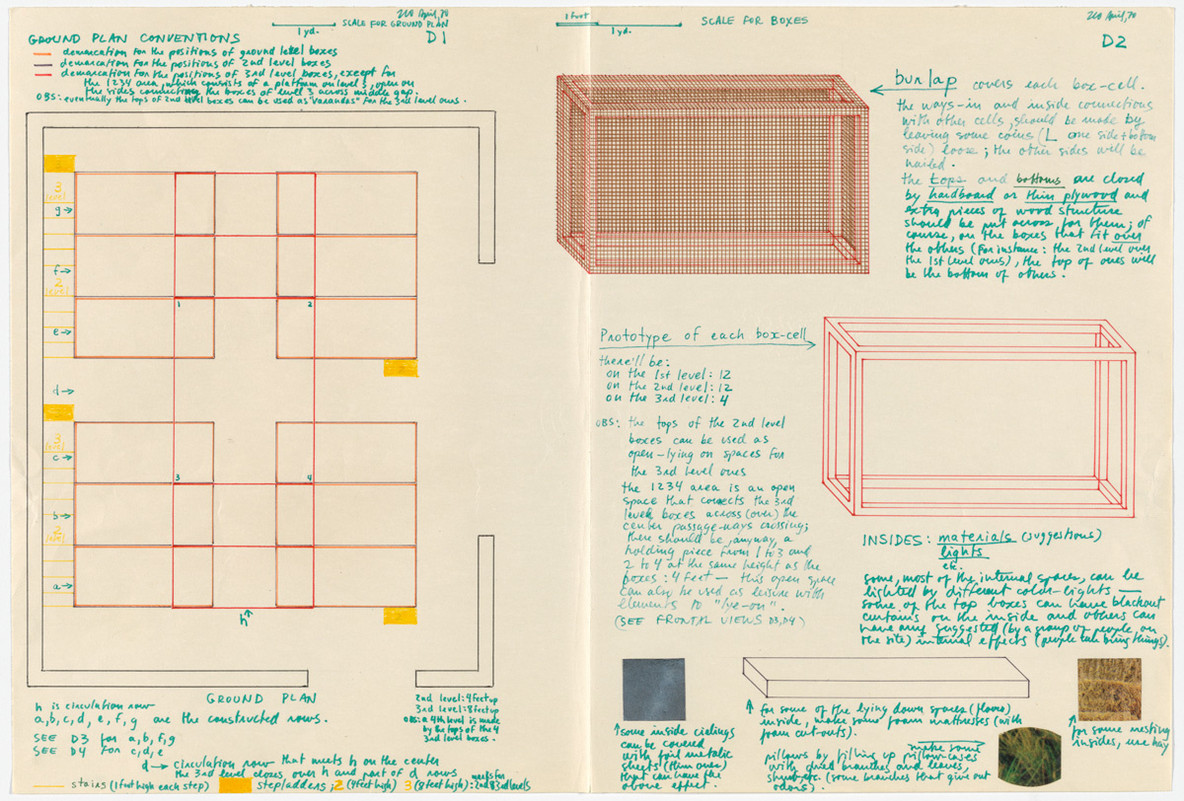 SCALE FOR GROUND PLAN
1 yd.
April, 70
D1
GROUND PLAN CONVENTIONS
demarcation for the positions of ground level boxes
demarcation for the positions of 2nd level boxes
demarcation for the positions of 3rd level boxes, except for
the 1234 area, which consists of a platform on level 3, open on
the sides connecting the boxes of level 3 across middle gap.
OBS: eventually the tops of 2nd level boxes can be used as "varandas" for the 3rd level ones.
3
level
g→
f→
2
level
e→
1
2
d→
3
level
c→
3
4
b→
2
level
a→
h
GROUND PLAN
h is circulation row
a, b, c, d, e, f, g are the constructed rows.
SEE D3 for a, b, f, g
SEE D4 for c, d, e
d → circulation row that meets h on the center
the 3rd level closes over h and part of d rows
2nd level: 4 feet up
3rd level: 8 feet up
OBS: a 4th level is made
by the tops of the 4
3rd level boxes.
stairs (1 foot high each step)
stepladders; 2 (4 feet high) 3 (8 feet high): 2nd & 3rd levels
1 foot
1 yd.
SCALE FOR BOXES
April, 70
D2
burlap covers each box-cell.
the ways-in and inside connections
with other cells, should be made by
leaving some coins (L one side + bottom
side) loose; the other sides will be
nailed.
the tops and bottoms are closed
by hardboard or thin plywood and
extra pieces of wood structure
should be put across for them; of
course, on the boxes that fit over
the others (for instance: the 2nd level over
the 1st level ones), the top of ones will
be the bottom of others.
Prototype of each box-cell
there'll be:
on the 1st level: 12
on the 2nd level: 12
on the 3rd level: 4
OBS: the tops of the 2nd level
boxes can be used as
open-lying on spaces for
the 3rd level ones
the 1234 area is an open
space that conects the 3rd
level boxes across (over) the
center passage-ways crossing;
there should be, anyway, a
holding piece from 1 to 3 and
2 to 4 at the same height as the
boxes: 4 feet — this open space
can also be used as leisure with
elements to "lye-on".
(SEE FRONTAL VIEWS D3, D4)
INSIDES: materials (suggestions)
lights
etc.
some, most of the internal spaces, can be
lighted by different color-lights —
some of the top boxes can have blackout
curtains on the inside and others can
have any suggested (by a group of people, on
the site) internal effects (people can bring things).
↑ some inside cielings
can be covered
with foil metalic
sheets (thin ones)
that can have the
above effect.
↑ for some of the lying down spaces (floors)
inside, make some foam mattresses (with
foam cut-outs).
make some
pillows by filling up pillow-cases
with dried branches and leaves,
shrubs etc. (some branches that give out
odors).
for some nesting
insides, use hay